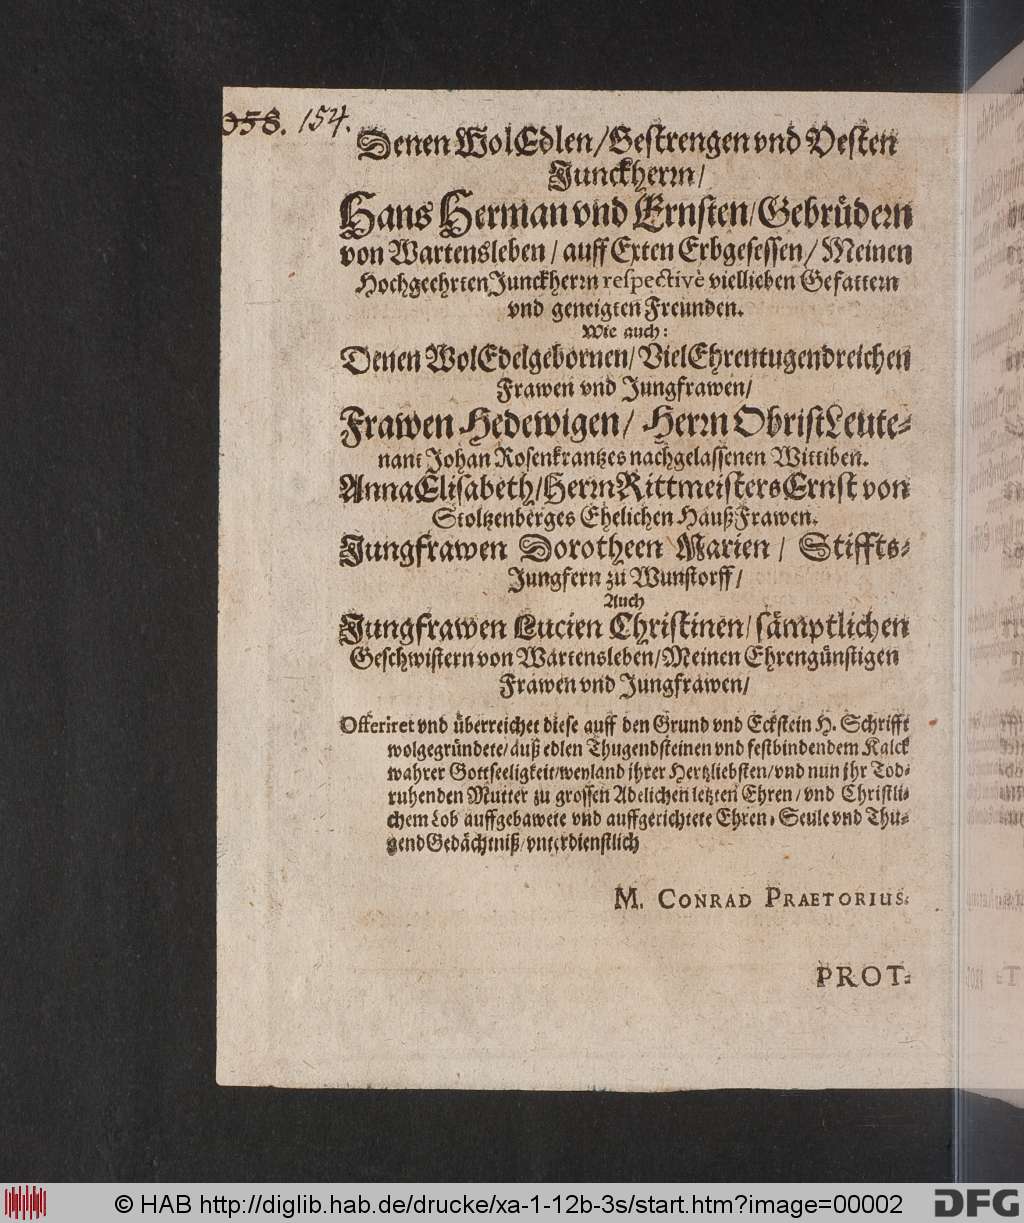 358. 154.
Denen WolEdlen/Gestrengen vnd Vesten
Junckherrn/
Hans Herman vnd Ernsten/Gebrüdern
von Wartensleben/auff Exten Erbgesessen/Meinen
Hochgeehrten Junckherrn respectivè viellieben Gefattern
vnd geneigten Freunden.
Wie auch:
Denen WolEdelgebornen/VielEhrentugendreichen
Frawen vnd Jungfrawen/
Frawen Hedewigen/ Herrn ObristLeute-
nant Johan Rosenkrantzes nachgelassenen Wittiben.
AnnaElisabeth/HerrnRittmeistersErnst von
Stoltzenberges Ehelichen HaußFrawen.
Jungfrawen Dorotheen Marien/ Stiffts-
Jungfern zu Wunstorff/
Auch
Jungfrawen Lucien Christinen/sämptlichen
Geschwistern von Wartensleben/Meinen Ehrengünstigen
Frawen vnd Jungfrawen/
Offeriret vnd überreichet diese auff den Grund vnd Eckstein H. Schrifft
wolgegründete/auß edlen Thugendsteinen vnd festbindendem Kalck
wahrer Gottseeligkeit/weyland jhrer Hertzliebsten/vnd nun jhr Tod-
ruhenden Mutter zu grossen Adelichen letzten Ehren/vnd Christli-
chem Lob auffgebawete vnd auffgerichtete Ehren-Seule vnd Thu-
gendGedächtniß/vnterdienstlich
M. CONRAD PRAETORIUS.
PROT-
© HAB http://diglib.hab.de/drucke/xa-1-12b-3s/start.htm?image=00002
DFG